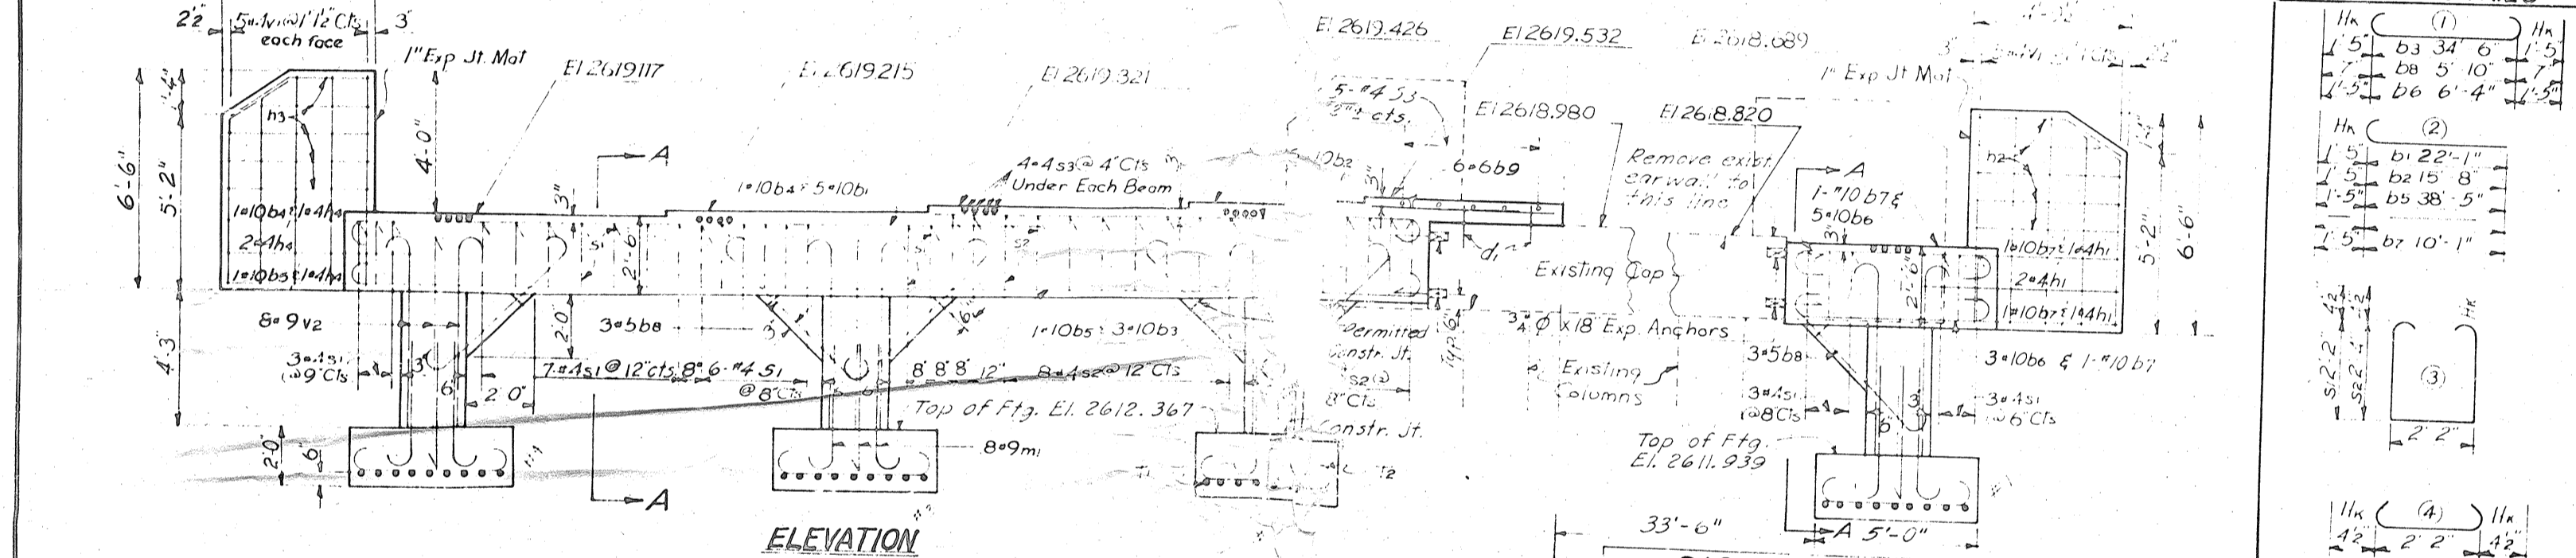 2'2"
each face
3"
1" Exp Jt. Mat
El 2619.117
El 2619.215
El 2619.321
El 2619.426
El 2619.532
El 2618.689
1" Exp Jt Mat
5-#4 S3
cts.
El 2618.980
El 2618.820
1'-4"
5'-2"
6'-6"
h3
4'-0"
A
3"
1#10b4 & 5#10b1
4#4s3@ 4"Cts
Under Each Beam
10b2
3"
6#6b9
Remove exist.
earwall to
this line
A
1-#10b7 &
5#10b6
3"
h2
5'-2"
6'-6"
1#10b4 & 1#4h4
2#4h4
1#10b5 & 1#4h4
S1
2'-6"
S2
d1
Existing Cap
2'-6"
1#10b7 & 1#4h1
2#4h1
1#10b7 & 1#4h1
8#9v2
2'-0"
3#5b8
3"
6"
1#10b5 & 3#10b3
Permitted
Constr. Jt.
Typ.
3/4" Ø x18" Exp. Anchors
4'-3"
3#4s1
@9"Cts
3"
6"
2'0"
7#4s1@12"cts
8"
6-#4 S1
@8"Cts
8" 8" 8" 12"
8#4s2@12"Cts
S2(2)
8"Cts
Existing
Columns
3#5b8
3#4s1
@8"Cts
3"
6"
3#4s1
@6"Cts
3#10b6 & 1-#10b7
Top of Ftg. El. 2612.367
Constr. Jt.
Top of Ftg.
El. 2611.939
2'-0"
6"
8#9m1
A
33'-6"
A
5'-0"
ELEVATION
Hk
(1)
Hk
1'5" b3 34' 6" 1'-5"
7" b8 5' 10" 7"
1'-5" b6 6'-4" 1'-5"
Hk
(2)
1'5" b1 22'-1"
1'5" b2 15' 8"
1'-5" b5 38'-5"
1'5" b7 10'-1"
Hk
S1 2'2"
S2
(3)
2'2"
Hk
(4)
Hk
4½"
2'2"
4½"